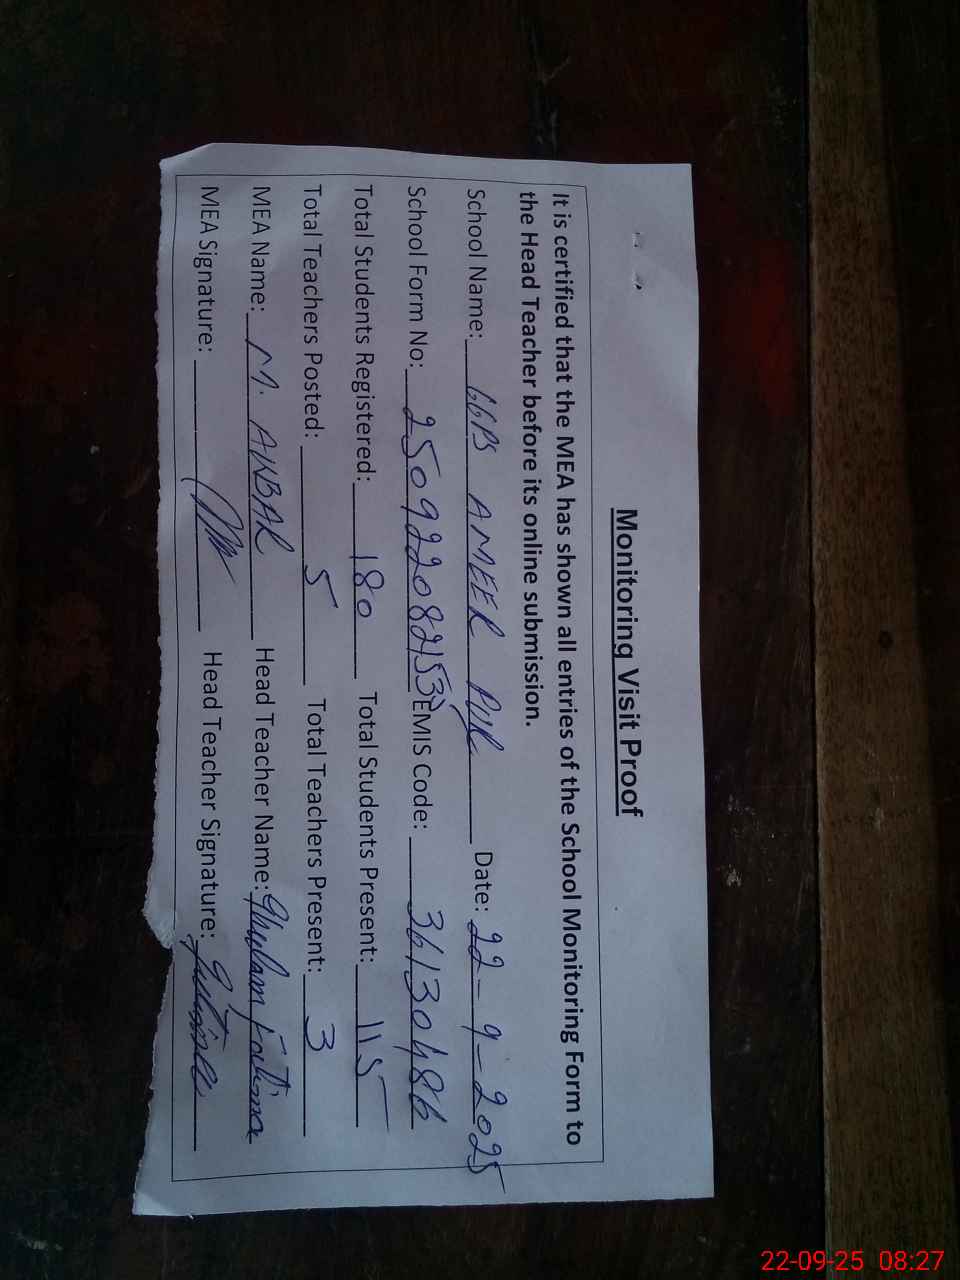 Monitoring Visit Proof
It is certified that the MEA has shown all entries of the School Monitoring Form to
the Head Teacher before its online submission.
School Name: GGPS AMEER PUR Date: 22-9-2025
School Form No: EMIS Code: 36130486
Total Students Registered: 180 Total Students Present: 115
Total Teachers Posted: 5 Total Teachers Present: 3
MEA Name: M. AKBAR Head Teacher Name: Ghulam Fatima
MEA Signature: Head Teacher Signature:
22-09-25 08:27